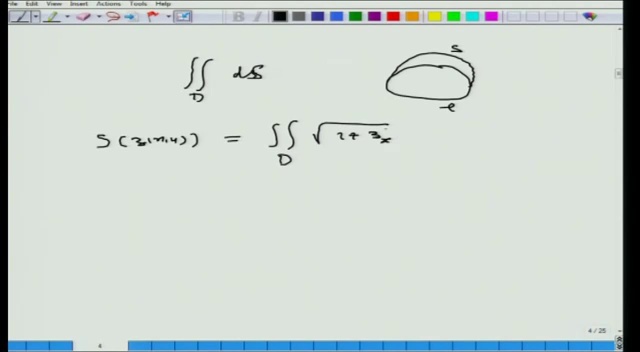 File Edit View Insert Actions Tools Help
B I
∬_D dS
S
ℓ
S(z(x,y)) = ∬_D √(1+z_x
4 / 25
4